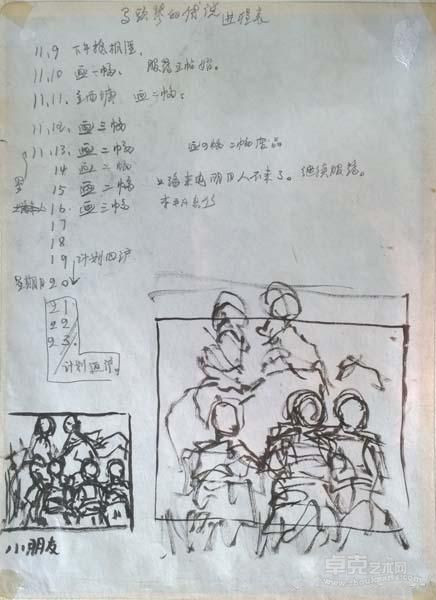 马头琴的传说 进程表
11.9 下午
11.10 画一幅、 服药
11.11. 画二幅。
11.12. 画三幅
11.13. 画二幅 画9幅 二幅废品
14 画二幅
15 画二幅 上海来电 明日人不来了。继续服药。
16. 画三幅
17
18
19 计划回沪
星期日 20
21
22
23.
计划返沪。
小朋友
卓克艺术网
www.zhuokearts.com